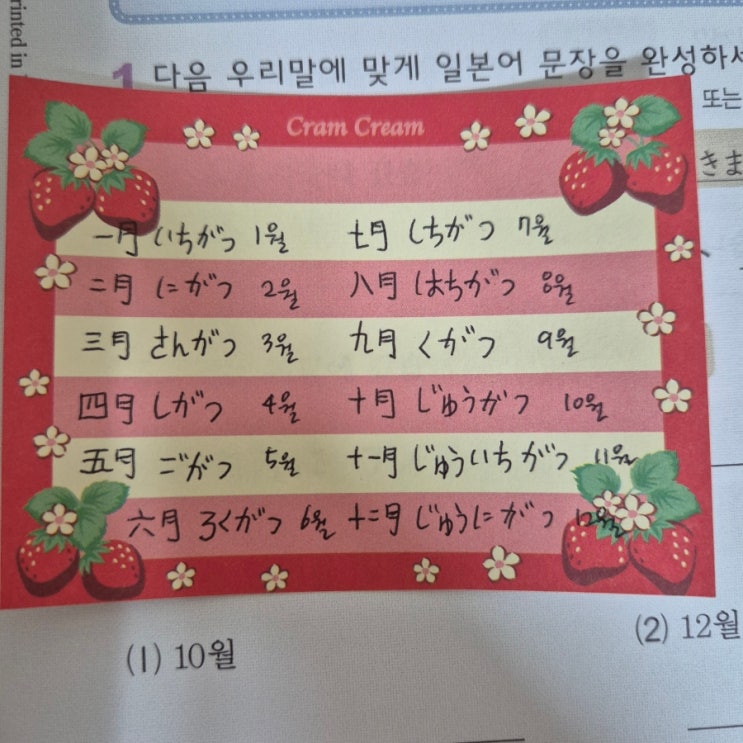 rinted in
1 다음 우리말에 맞게 일본어 문장을 완성하
또는
きま
Cram Cream
一月 いちがつ 1월 七月 しちがつ 7월
二月 にがつ 2월 八月 はちがつ 8월
三月 さんがつ 3월 九月 くがつ 9월
四月 しがつ 4월 十月 じゅうがつ 10월
五月 ごがつ 5월 十一月 じゅういちがつ 11월
六月 ろくがつ 6월 十二月 じゅうにがつ 12월
(1) 10월 (2) 12월